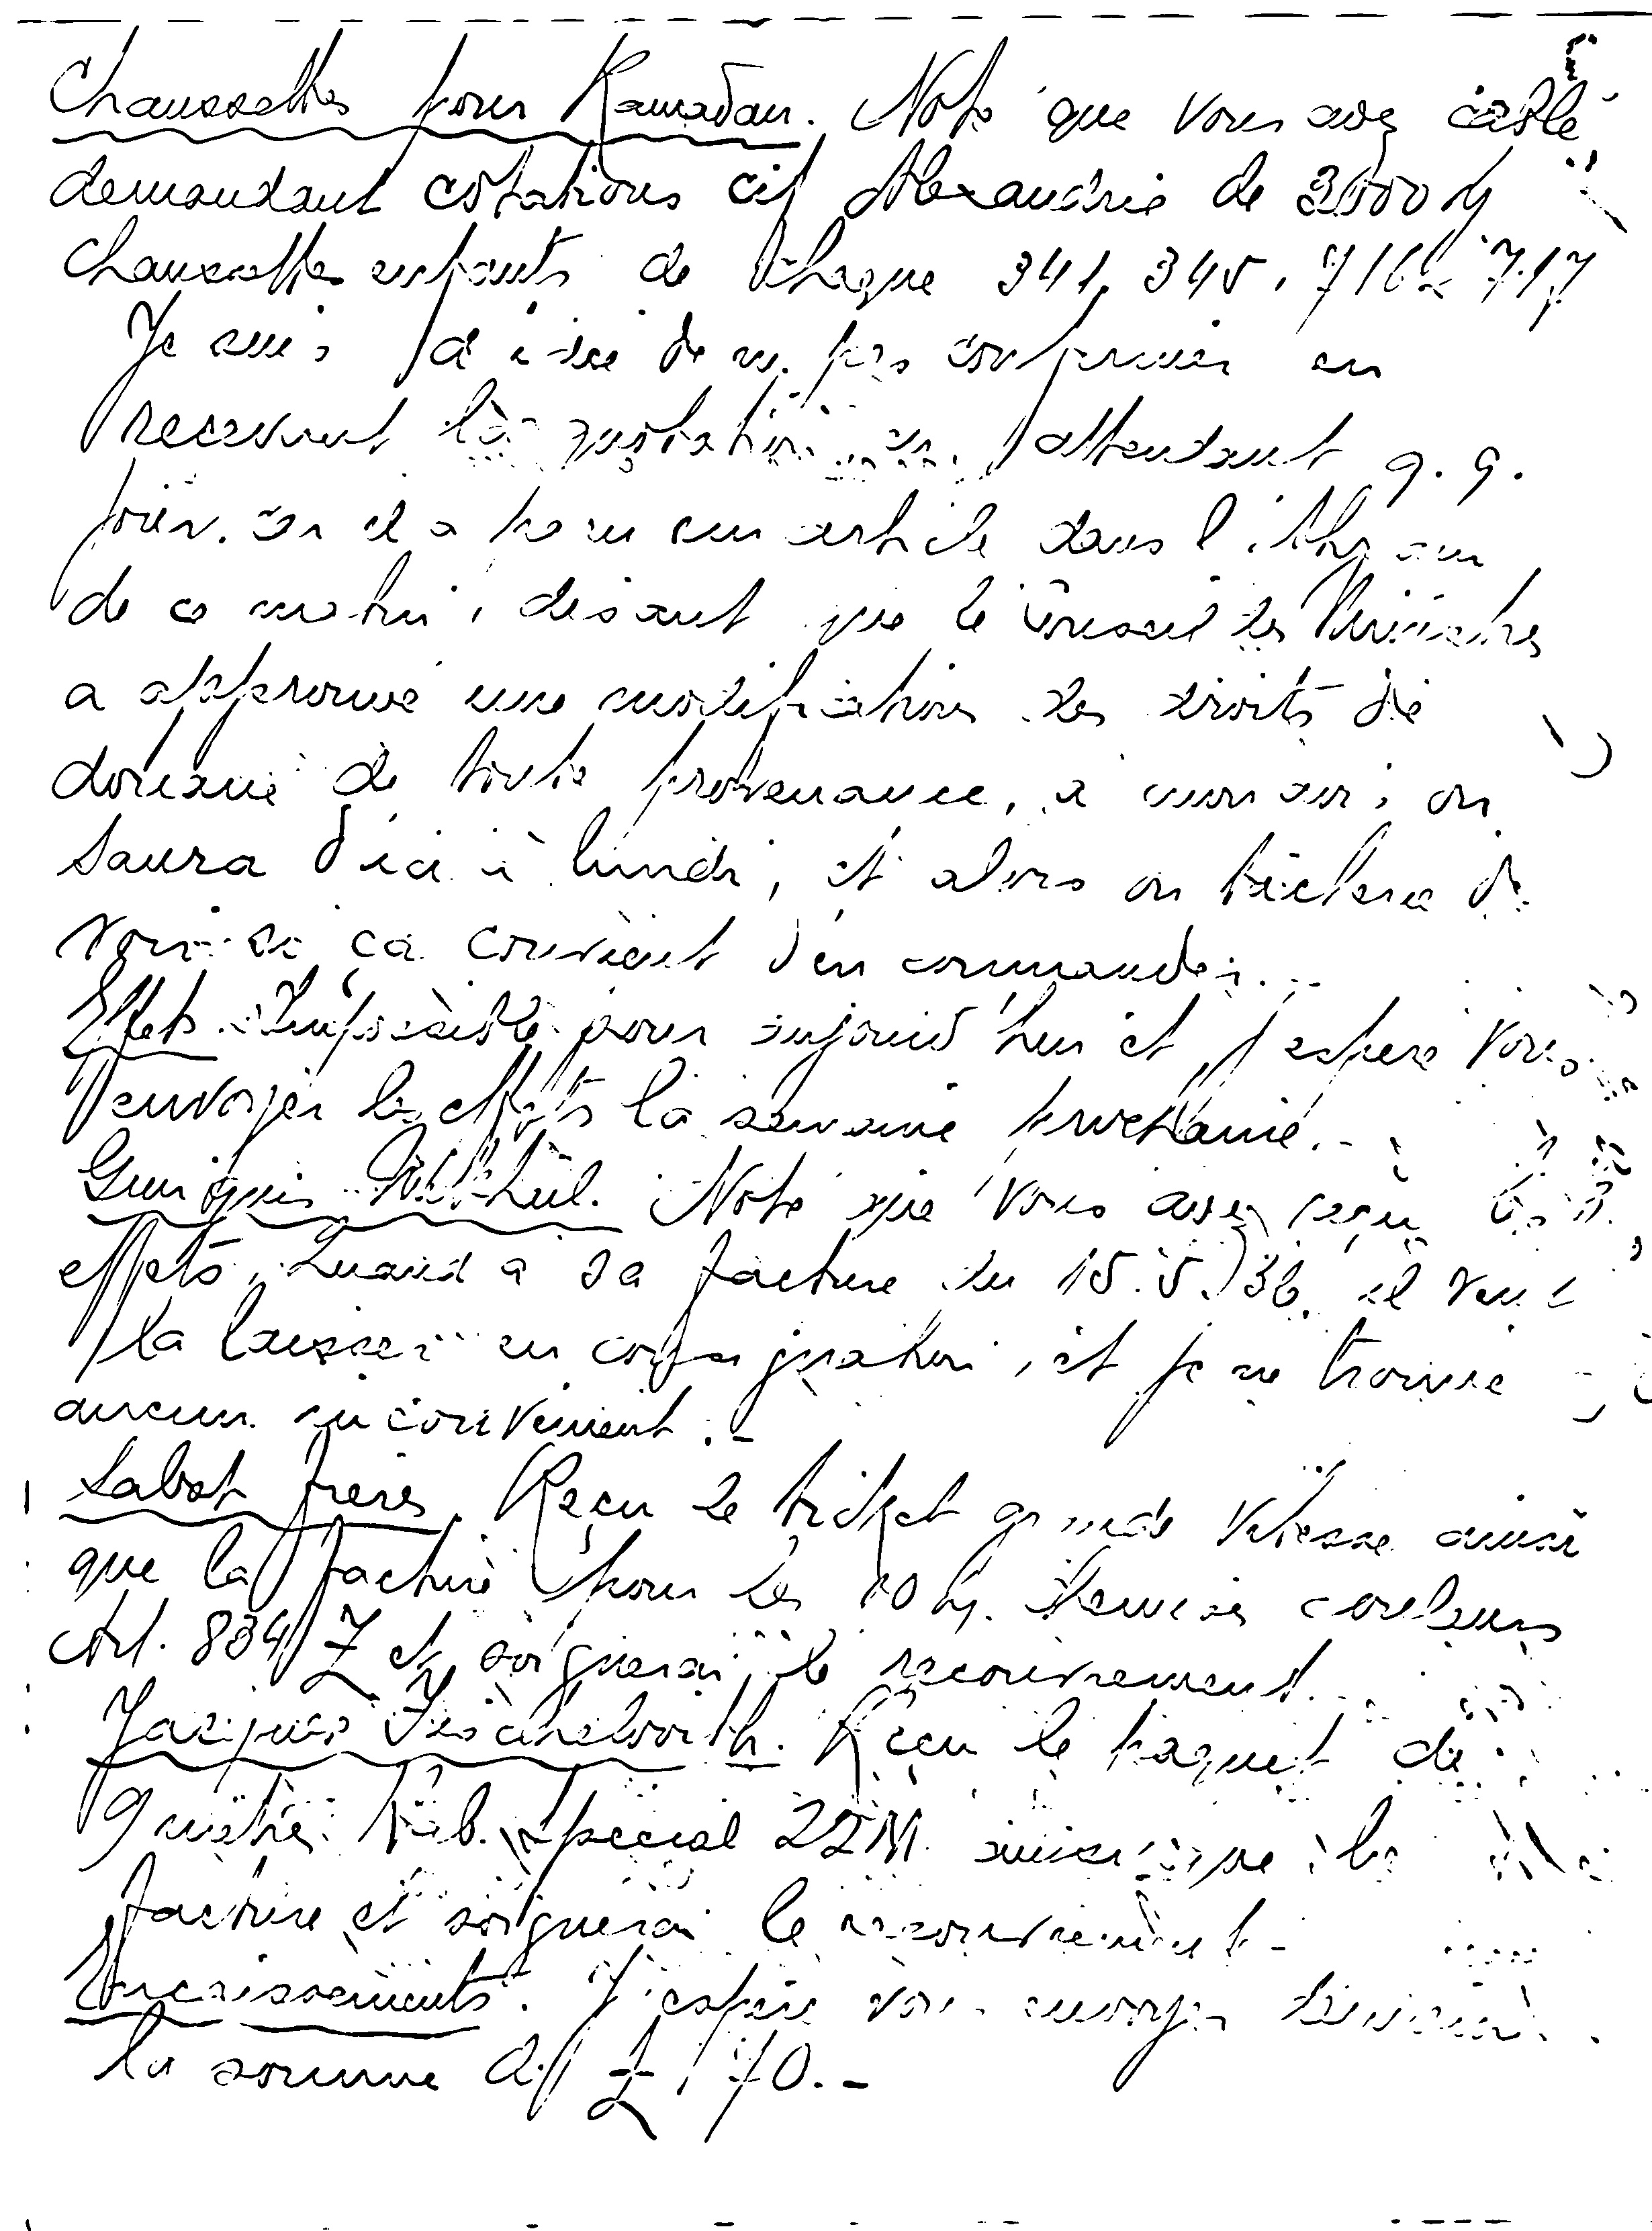 Chaussettes pour Ramadan. Noté que vous avez cablé
demandant cotations cif Alexandrie de 3000 Dz
chaussettes enfants de chaque 341, 345, 716 & 717
Je suis d'avis de ne pas confirmer en
recevant la quotation en attendant q.q.
jours. car il a paru un article dans l'
de ce matin, disant que le Conseil des Ministres
a approuvé une modification des droits de
douane de toute provenance, à mon avis, on
saura d'ici à lundi, et alors on tâchera de
voir si ça convient d'en commander...
Effets. Impossible pour aujourd'hui et j'espère vous
envoyer les effets la semaine prochaine.-
Guirguis Mikhail. Noté que vous avez reçu les
effets. Quand à sa facture du 15.5.36. il veut
la laisser en consignation, et je ne trouve
aucun inconvenient.-
Sabat frères. Reçu le ticket grande vitesse ainsi
que la facture pour les 10 Dz. couleurs
Art. 834/Z et soignerai le recouvrement..
Jacques. Reçu le paquet de
9 mètres special 22M. ainsi que la
facture et soignerai le recouvrement-
Encaissements. J'espère vous envoyer
la somme de £ 170.-